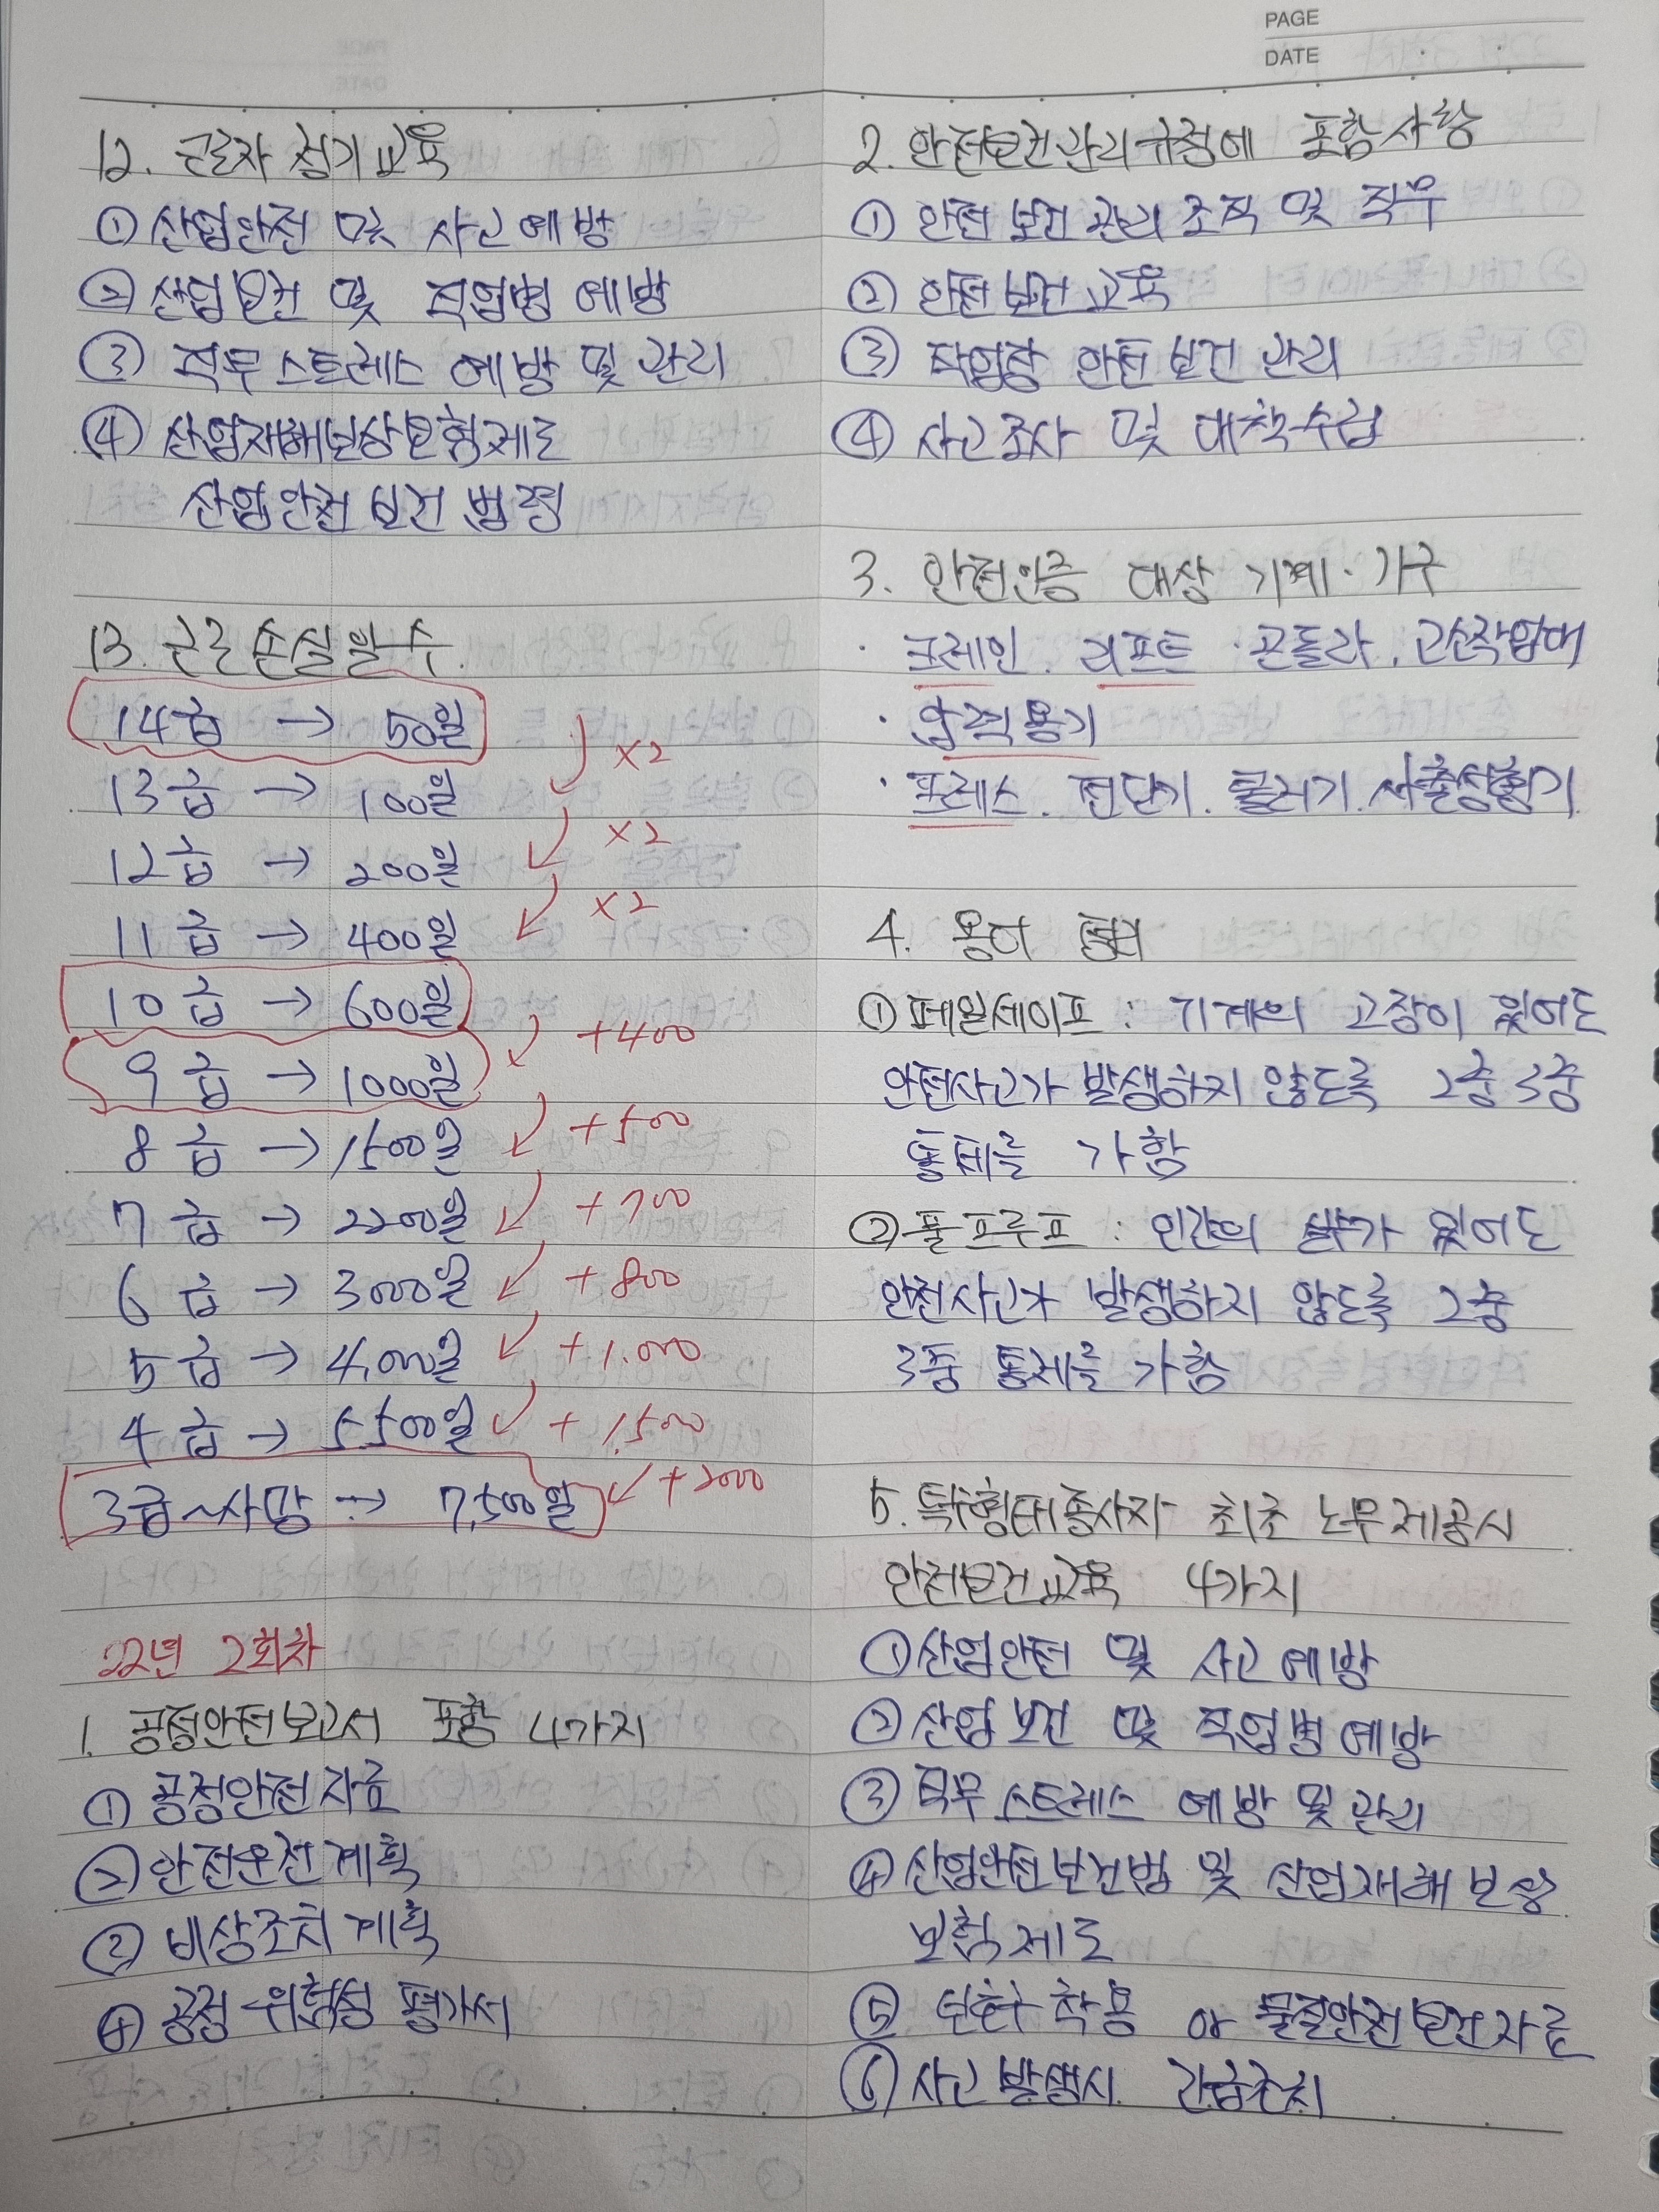 PAGE
DATE
12. 근로자 정기교육
① 산업안전 및 사고예방
② 산업보건 및 직업병 예방
③ 직무스트레스 예방 및 관리
④ 산업재해보상보험제도
산업안전보건법령
13. 근로손실일수
14급 → 50일
×2
13급 → 100일
×2
12급 → 200일
×2
11급 → 400일
10급 → 600일
+400
9급 → 1000일
+500
8급 → 1500일
+700
7급 → 2200일
+800
6급 → 3000일
+1.000
5급 → 4,000일
+1,500
4급 → 5.500일
+2000
3급~사망 → 7,500일
22년 2회차
1. 공정안전보고서 포함 4가지
① 공정안전자료
② 안전운전계획
③ 비상조치계획
④ 공정위험성 평가서
2. 안전보건관리규정에 포함사항
① 안전보건관리조직 및 직무
② 안전보건교육
③ 작업장 안전보건관리
④ 사고조사 및 대책수립
3. 안전인증 대상 기계·기구
· 크레인. 리프트. 곤돌라. 고소작업대
· 압력용기
· 프레스. 전단기. 롤러기. 사출성형기
4. 용어
① 페일세이프 : 기계의 고장이 있어도
안전사고가 발생하지 않도록 2중3중
통제를 가함
② 풀프루프 : 인간의 실수가 있어도
안전사고가 발생하지 않도록 2중
3중 통제를 가함
5. 특수형태종사자 최초 노무제공시
안전보건교육 4가지
① 산업안전 및 사고예방
② 산업보건 및 직업병예방
③ 직무스트레스 예방 및 관리
④ 산업안전보건법 및 산업재해보상
보험제도
⑤ 보호구 착용 or 물질안전보건자료
⑥ 사고발생시 긴급조치